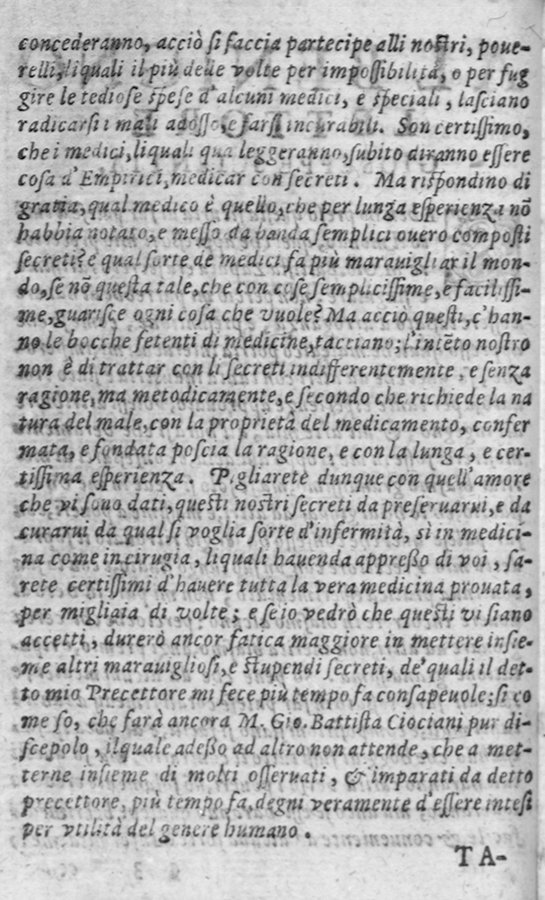 concederanno, acciò si faccia partecipe alli nostri, poue-
relli, liquali il più delle volte per impossibilità, o per fug
gire le tediose spese d'alcuni medici, e speciali, lasciano
radicarsi i mali adosso, e farsi incurabili. Son certissimo,
che i medici, liquali qua leggeranno, subito diranno essere
cosa d'Empirici, medicar con secreti. Ma rispondino di
gratia, qual medico è quello, che per lunga esperienza nō
habbia notato, e messo da banda semplici ouero composti
secreti? e qual sorte de medici fa più marauigliar il mon-
do, se nō questa tale, che con cose semplicissime, e facilissi-
me, guarisce ogni cosa che vuole? Ma acciò questi, c'han-
no le bocche fetenti di medicine, tacciano; l'intēto nostro
non è di trattar con li secreti indifferentemente, e senza
ragione, ma metodicamente, e secondo che richiede la na
tura del male, con la proprietà del medicamento, confer
mata, e fondata poscia la ragione, e con la lunga, e cer-
tissima esperienza. Pigliarete dunque con quell'amore
che vi sono dati, questi nostri secreti da preseruarui, e da
curarui da qual si voglia sorte d'infermità, sì in medici-
na come in cirugia, liquali hauendo appresso di voi, sa-
rete certissimi d'hauere tutta la vera medicina prouata,
per migliaia di volte; e se io vedrò che questi vi siano
accetti, durerò ancor fatica maggiore in mettere insie-
me altri marauigliosi, e stupendi secreti, de' quali il det-
to mio Precettore mi fece più tempo fa consapeuole; si co
me so, che farà ancora M. Gio. Battista Ciociani pur di-
scepolo, ilquale adesso ad altro non attende, che a met-
terne insieme di molti osseruati, & imparati da detto
precettore, più tempo fa, degni veramente d'essere intesi
per vtilità del genere humano.
TA-